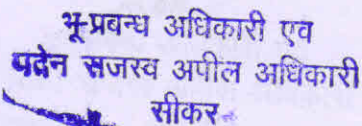 भू-प्रबन्ध अधिकारी एव
पदेन सजस्व अपील अधिकारी
सीकर